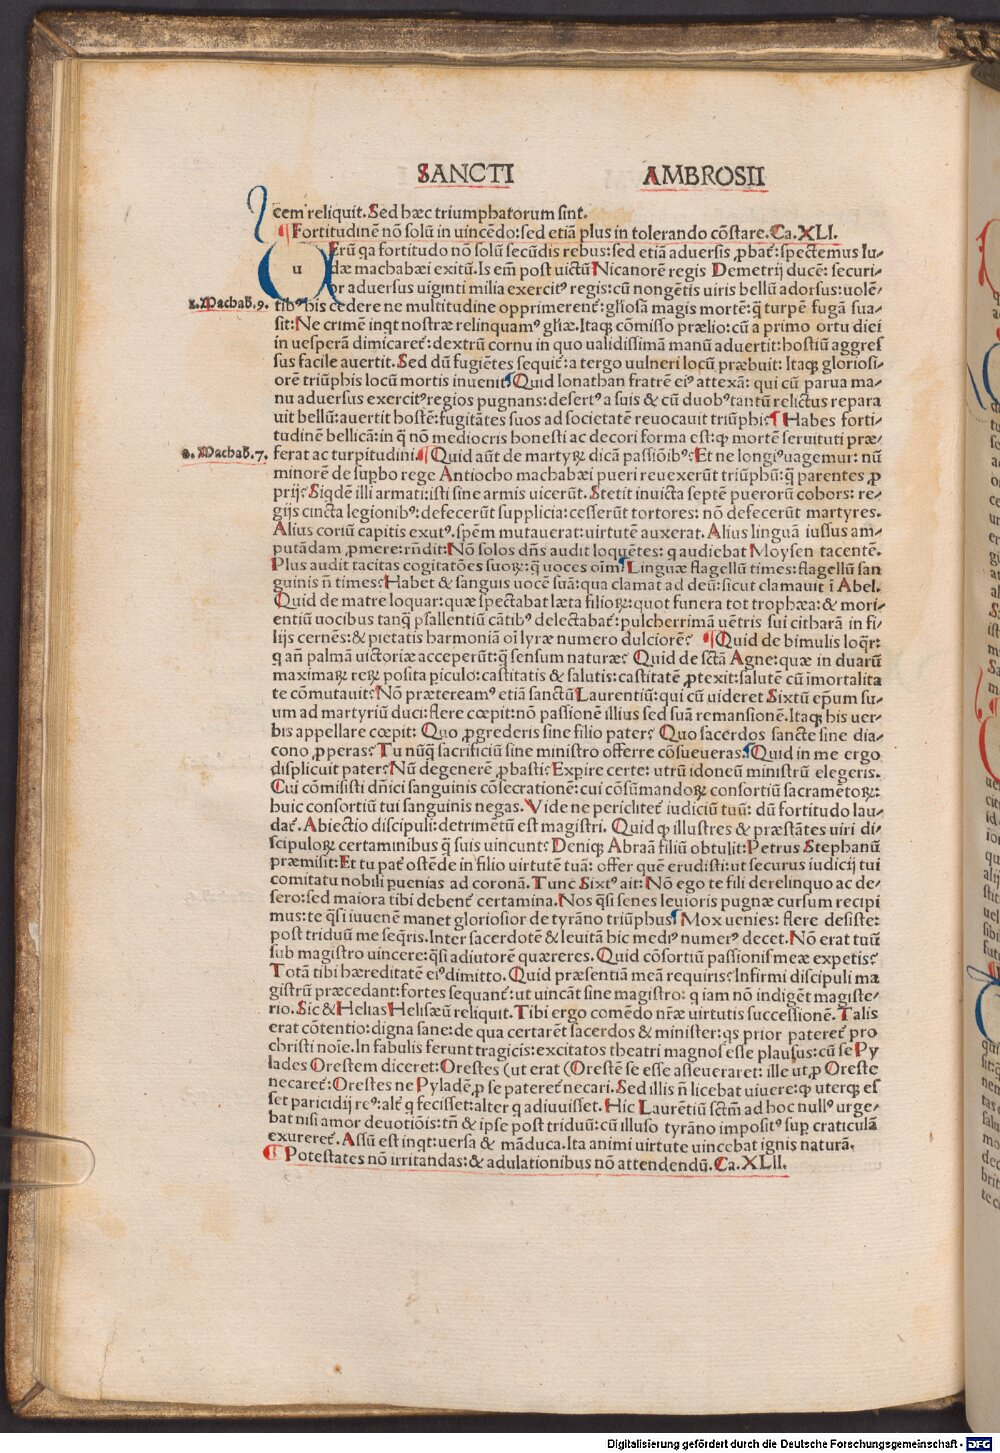 SANCTI AMBROSII
cem reliquit. Sed hæc triumphatorum sint.
¶Fortitudinē nō solū in uincēdo: sed etiā plus in tolerando cōstare. Ca. XLI.
uErū qa fortitudo nō solū secūdis rebus: sed etiā aduersis ꝓbat̄: spectemus Iu⸗
dæ machabæi exitū. Is em̄ post uictū Nicanorē regis Demetrij ducē: securi⸗
or aduersus uiginti milia exercitꝰ regis: cū nongētis uiris bellū adorsus: uolē⸗
1. Machab. 9.
tibꝰ his cedere ne multitudine opprimerent̄: gl'iosā magis mortē: q̄ turpē fugā sua⸗
sit: Ne crimē inqt nostræ relinquamꝰ gl'iæ. Itaqꝫ cōmisso prælio: cū a primo ortu diei
in uesperā dimicaret̄: dextrū cornu in quo ualidissimā manū aduertit: hostiū aggres
sus facile auertit. Sed dū fugiētes sequit̄: a tergo uulneri locū præbuit: Itaqꝫ gloriosi⸗
orē triūphis locū mortis inuenit ¶Quid Ionathan fratrē eiꝰ attexā: qui cū parua ma⸗
nu aduersus exercitꝰ regios pugnans: desertꝰ a suis & cū duobꝰ tantū relictus repara
uit bellū: auertit hostē: fugitātes suos ad societatē reuocauit triūphi? ¶Habes forti⸗
tudinē bellicā: in q̄ nō mediocris honesti ac decori forma est: ꝙ mortē seruituti præ⸗
2. Machab. 7.
ferat ac turpitudini. ¶Quid aūt de martyꝝ dicā passiōibꝰ? Et ne longiꝰ uagemur: nū
minorē de sup̱bo rege Antiocho machabæi pueri reuexerūt triūphū: q̄ parentes ꝓ
prij? Siqdē illi armati: isti sine armis uicerūt. Stetit inuicta septē puerorū cohors: re⸗
gijs cincta legionibꝰ: defecerūt supplicia: cesserūt tortores: nō defecerūt martyres.
Alius coriū capitis exutꝰ. spēm mutauerat: uirtutē auxerat. Alius linguā iussus am⸗
putādam ꝓmere: rn̄dit: Nō solos dn̄s audit loquētes: q audiebat Moysen tacentē.
Plus audit tacitas cogitatōes suoꝝ: q̄ uoces oīm ¶Linguæ flagellū times: flagellū san
guinis n̄ times? Habet & sanguis uocē suā: qua clamat ad deū: sicut clamauit ī Abel.
Quid de matre loquar: quæ spectabat læta filioꝝ: quot funera tot trophæa: & mori⸗
entiū uocibus tanq̄ psallentiū cātibꝰ delectabat̄: pulcherrimā uētris sui citharā in fi⸗
lijs cernēs: & pietatis harmoniā oī lyræ numero dulciorē? ¶Quid de bimulis loqr̄:
q an̄ palmā uictoriæ acceperūt: q̄ sensum naturæ? Quid de sctā Agne: quæ in duarū
maximaꝝ reꝝ posita piculo: castitatis & salutis: castitatē ꝓtexit: salutē cū īmortalita
te cōmutauit? Nō præteream̄ꝰ etiā sanctū Laurentiū: qui cū uideret Sixtū ep̄um su⸗
um ad martyriū duci: flere cœpit: nō passionē illius sed suā remansionē. Itaqꝫ his uer⸗
bis appellare cœpit: Quo ꝓgrederis sine filio pater? Quo sacerdos sancte sine dia⸗
cono ꝓperas? Tu nūq̄ sacrificiū sine ministro offerre cōsueueras. ¶Quid in me ergo
displicuit pater? Nū degenerē ꝓbasti? Expire certe: utrū idoneū ministrū elegeris.
Cui cōmisisti dn̄ici sanguinis cōsecrationē: cui cōsūmandoꝝ consortiū sacramētoꝝ:
huic consortiū tui sanguinis negas. Vide ne periclitet̄ iudiciū tuū: dū fortitudo lau⸗
dat̄. Abiectio discipuli: detrimētū est magistri. Quid ꝙ illustres & præstātes uiri di⸗
scipuloꝝ certaminibus q̄ suis uincunt? Deniqꝫ Abraā filiū obtulit: Petrus Stephanū
præmisit: Et tu pat̄ ostēde in filio uirtutē tuā: offer quē erudisti: ut securus iudicij tui
comitatu nobili puenias ad coronā. Tunc Sixtꝰ ait: Nō ego te fili derelinquo ac de⸗
sero: sed maiora tibi debent̄ certamina. Nos q̄si senes leuioris pugnæ cursum recipi
mus: te q̄si iuuenē manet gloriosior de tyrāno triūphus ¶Mox uenies: flere desiste:
post triduū me seq̄ris. Inter sacerdotē & leuitā hic mediꝰ numerꝰ decet. Nō erat tuū
sub magistro uincere: q̄si adiutorē quæreres. Quid cōsortiū passionis meæ expetis?
Totā tibi hæreditatē eiꝰ dimitto. Quid præsentiā meā requiris? Infirmi discipuli ma
gistrū præcedant: fortes sequant̄: ut uincāt sine magistro: q iam nō indigēt magiste⸗
rio. Sic & Helias Helisæū reliquit. Tibi ergo comēdo nr̄æ uirtutis successionē. Talis
erat cōtentio: digna sane: de qua certarēt sacerdos & minister: qs prior pateret̄ pro
christi noīe. In fabulis ferunt tragicis: excitatos theatri magnos esse plausus: cū se Py
lades Orestem diceret: Orestes (ut erat (Orestē se esse asseueraret: ille ut ꝓ Oreste
necaret̄: Orestes ne Pyladē ꝓ se pateret̄ necari. Sed illis n̄ licebat uiuere: ꝙ uterqꝫ es
set paricidij reꝰ: alt̄ q fecisset: alter q adiuuisset. Hic Laurētiū sctm̄ ad hoc nullꝰ urge⸗
bat nisi amor deuotiōis: tn̄ & ipse post triduū: cū illuso tyrāno impositꝰ sup̱ craticulā
exureret̄. Assū est inqt: uersa & māduca. Ita animi uirtute uincebat ignis naturā.
¶Potestates nō irritandas: & adulationibus nō attendendū. Ca. XLII.
Digitalisierung gefördert durch die Deutsche Forschungsgemeinschaft - DFG